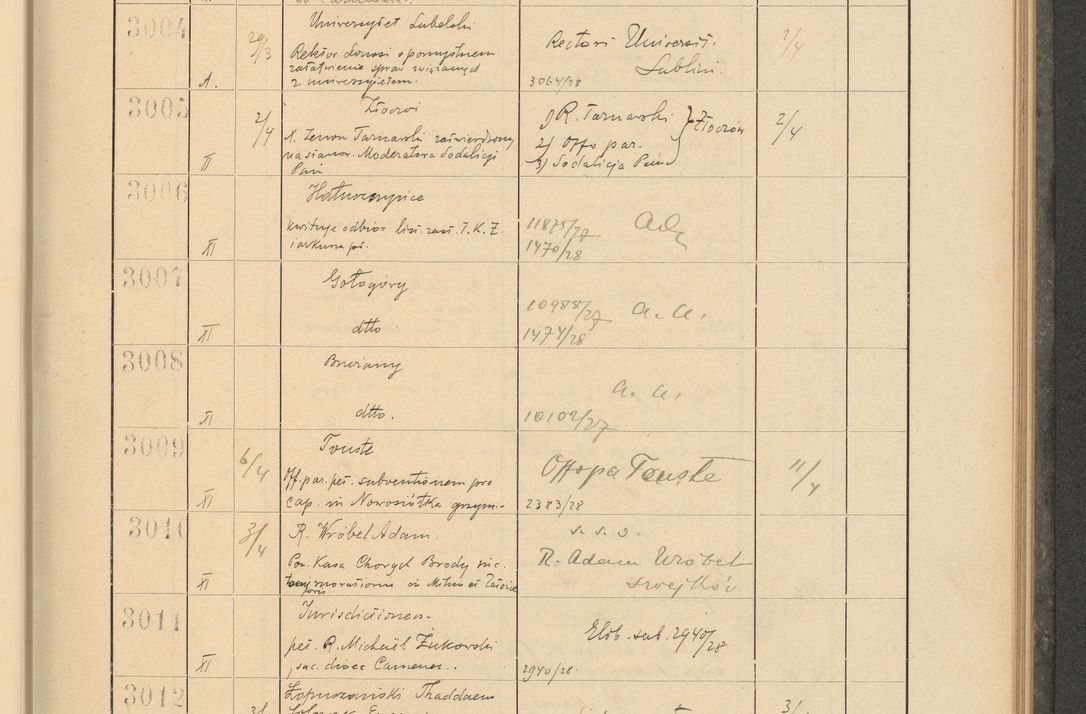 3004
Uniwersytet Lubelski
29/3
Rektor donosi o pomyślnem
załatwieniu spraw związanych
z uniwersytetem.
A.
Rectori Universit.
Lublini.
3064/28
2/4
3005
Złoczów
2/4
R. Zenon Tarnawski zatwierdzony
na stanow. Moderatora Sodalicji
Pań
II
1) R. Tarnawski
2) Offo par.
3) Sodalicja Pań
} Złoczów
2/4
3006
Hołuszczyńce
kwituje odbiór list. zast. T. K. Z.
i arkusza
XI
11875/27
1470/28
3007
Gołogóry
dtto
XI
10988/27
1474/28
a. a.
3008
Brzeżany
dtto.
XI
a. a.
10102/27
3009
Touste
6/4
Off. par. pet. subventionem pro
cap. in Nowosiółka grzym.
XI
Offo pa Touste
2383/28
11/4
3010
R. Wróbel Adam.
3/4
Pow. Kasa Chorych Brody
moratorium in
XI
s. s. o.
R. Adam Wróbel
3011
Jurisdictionem.
pet. R. Michaël Żukowski
sac. dioec Camenec.
XI
Elob. sub. 2940/28
2940/28.
3012
Łopuszański Thaddaeus
3/
3/